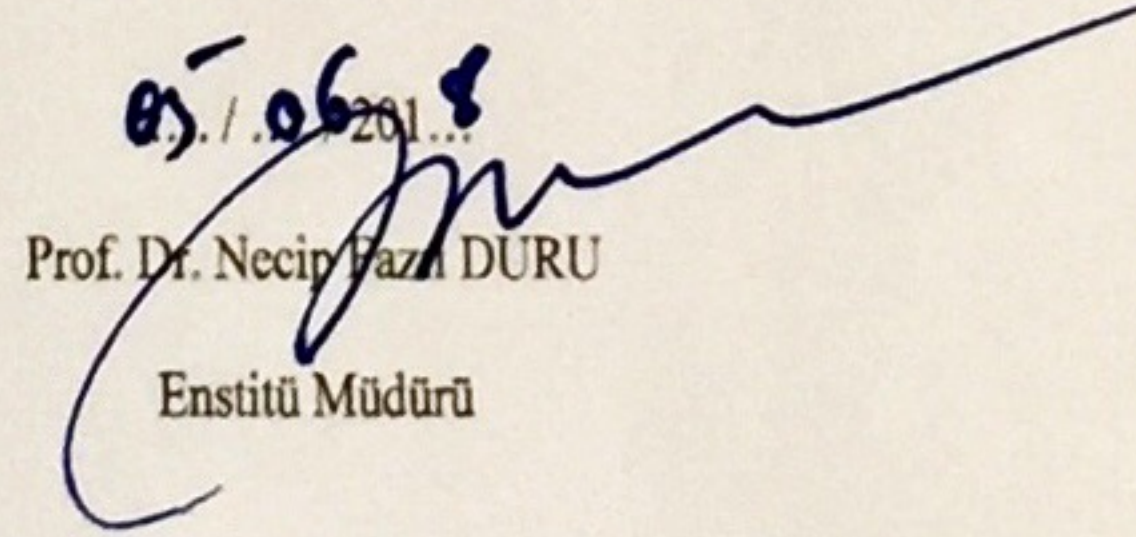 05 / 06 / 2018
Prof. Dr. Necip Fazıl DURU
Enstitü Müdürü